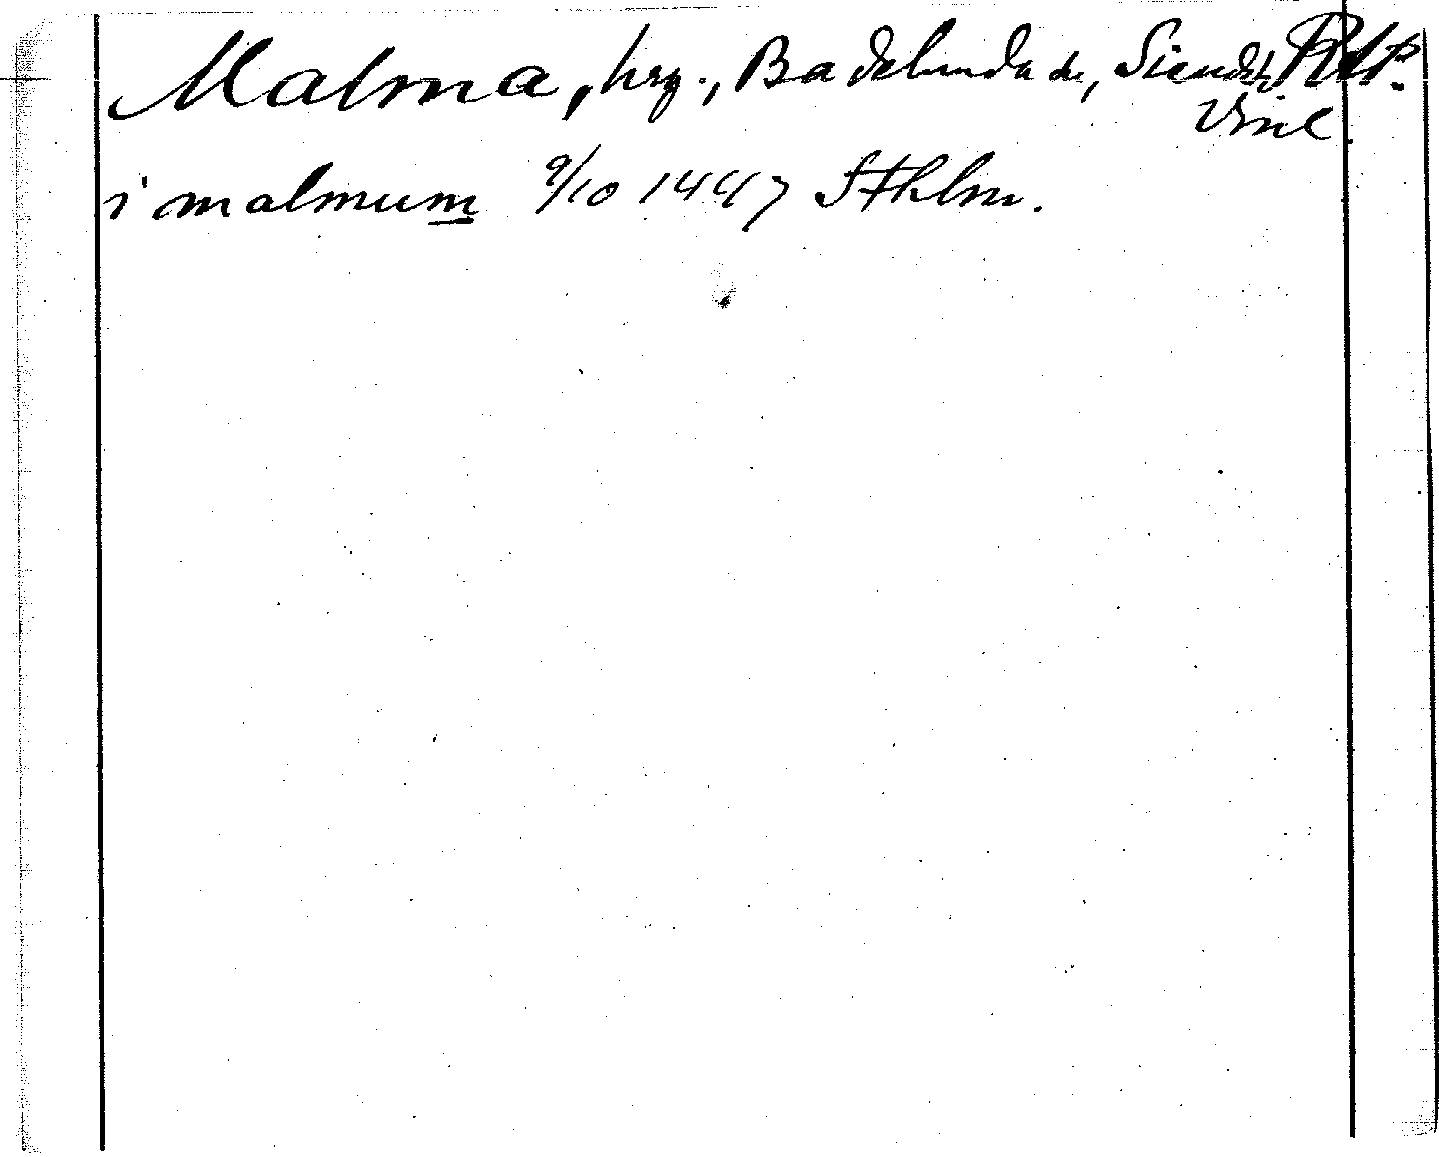 Malma, hrg., Badelunda sn, Siende hd
Vsml.
i malmum 9/10 1447 Sthlm.